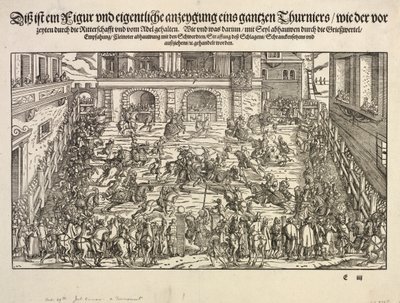 Diß ist ein Figur vnd eigentliche anzeygung eins gantzen Thurniers / wie der vor
zeyten durch die Ritterschafft vnd vom Adel gehalten. Wie vnd was darinn / mit Seyl abhauwen durch die Grießwertel /
Empfahung / Kleinoter abhauwung mit den Schwerdten / Straffung deß Schlagens / Schranckensetzens vnd
außziehens / ꝛc. gehandelt worden.
E iiij